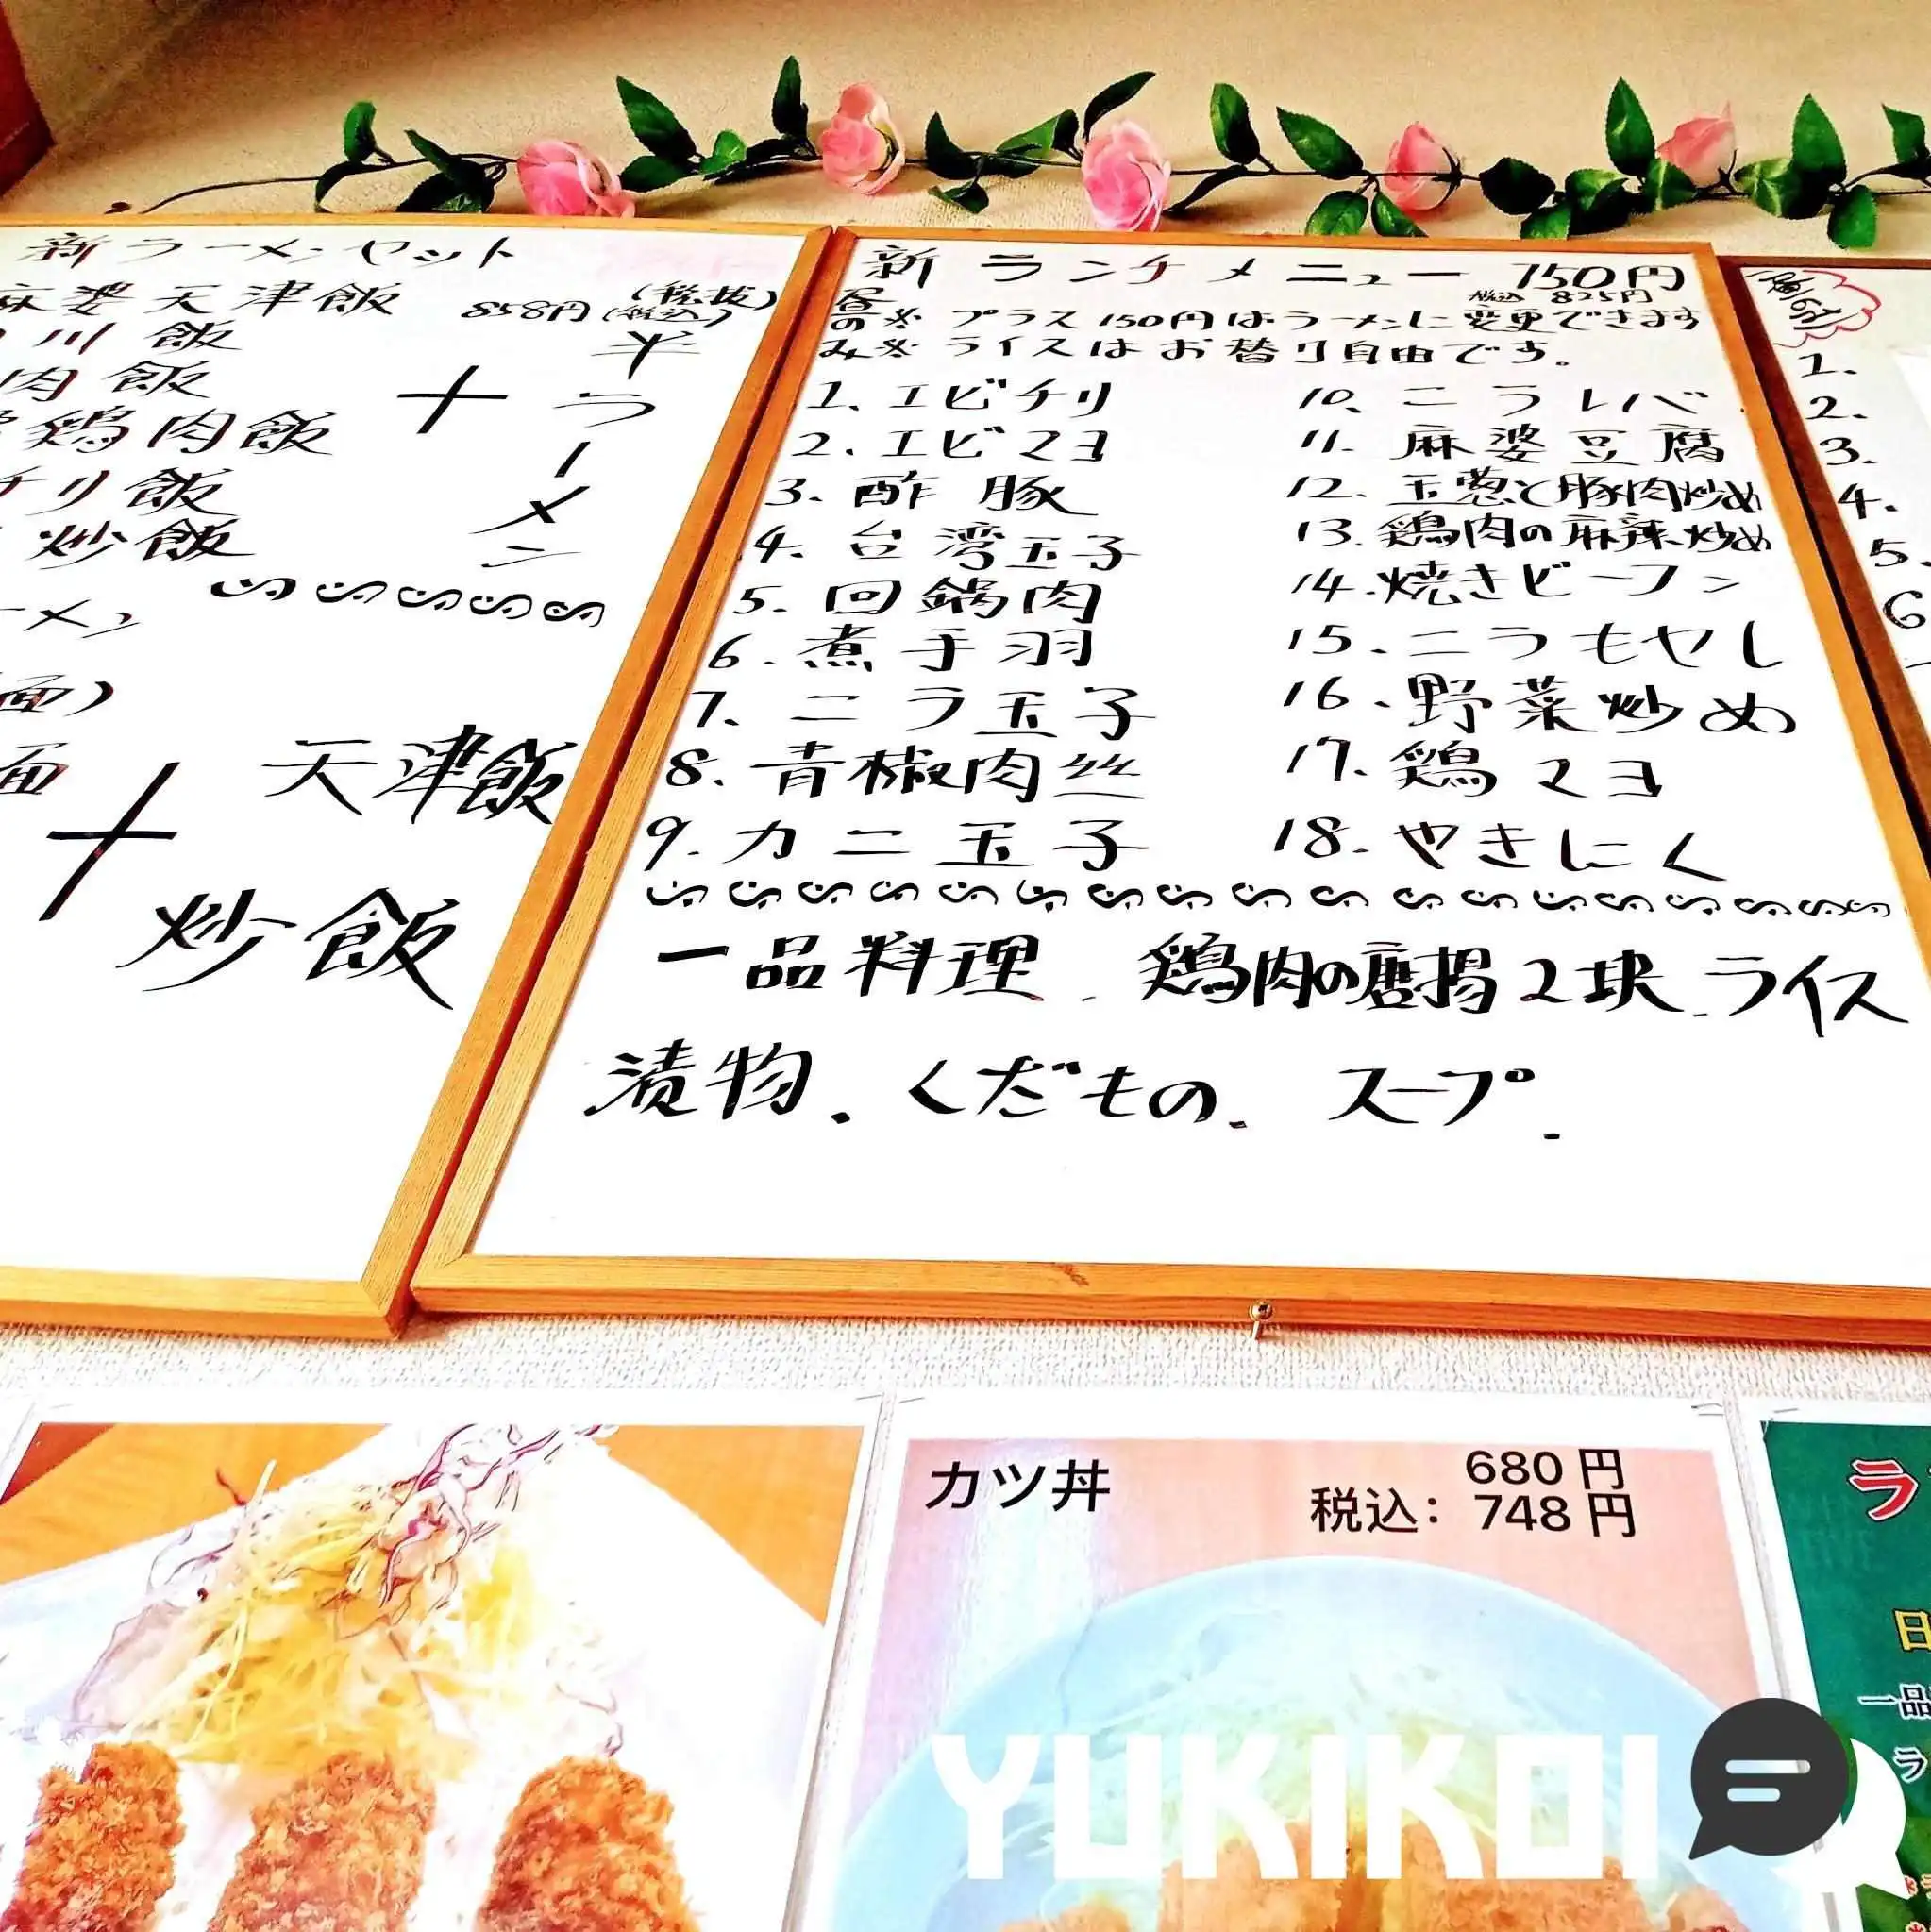 新ラーメンセット
麻婆天津飯 858円(税込)(税抜)
川飯
肉飯
鶏肉飯
チリ飯
炒飯
+ 半ラーメン
ーメン
面)
面
+
天津飯
炒飯
新ランチメニュー 750円
税込 825円
昼のみ
※プラス150円はラーメンに変更できます
※ライスはお替り自由です。
1、エビチリ
2、エビマヨ
3、酢豚
4、台湾玉子
5、回鍋肉
6、煮手羽
7、ニラ玉子
8、青椒肉丝
9、カニ玉子
10、ニラレバ
11、麻婆豆腐
12、玉葱と豚肉炒め
13、鶏肉の麻辣炒め
14、焼きビーフン
15、ニラもやし
16、野菜炒め
17、鶏マヨ
18、やきにく
一品料理、鶏肉の唐揚2块、ライス
漬物、くだもの、スープ、
1.
2.
3.
4.
5.
6
カツ丼
680 円
税込: 748 円
ラ
日
一品
ラ
YUKIKOI